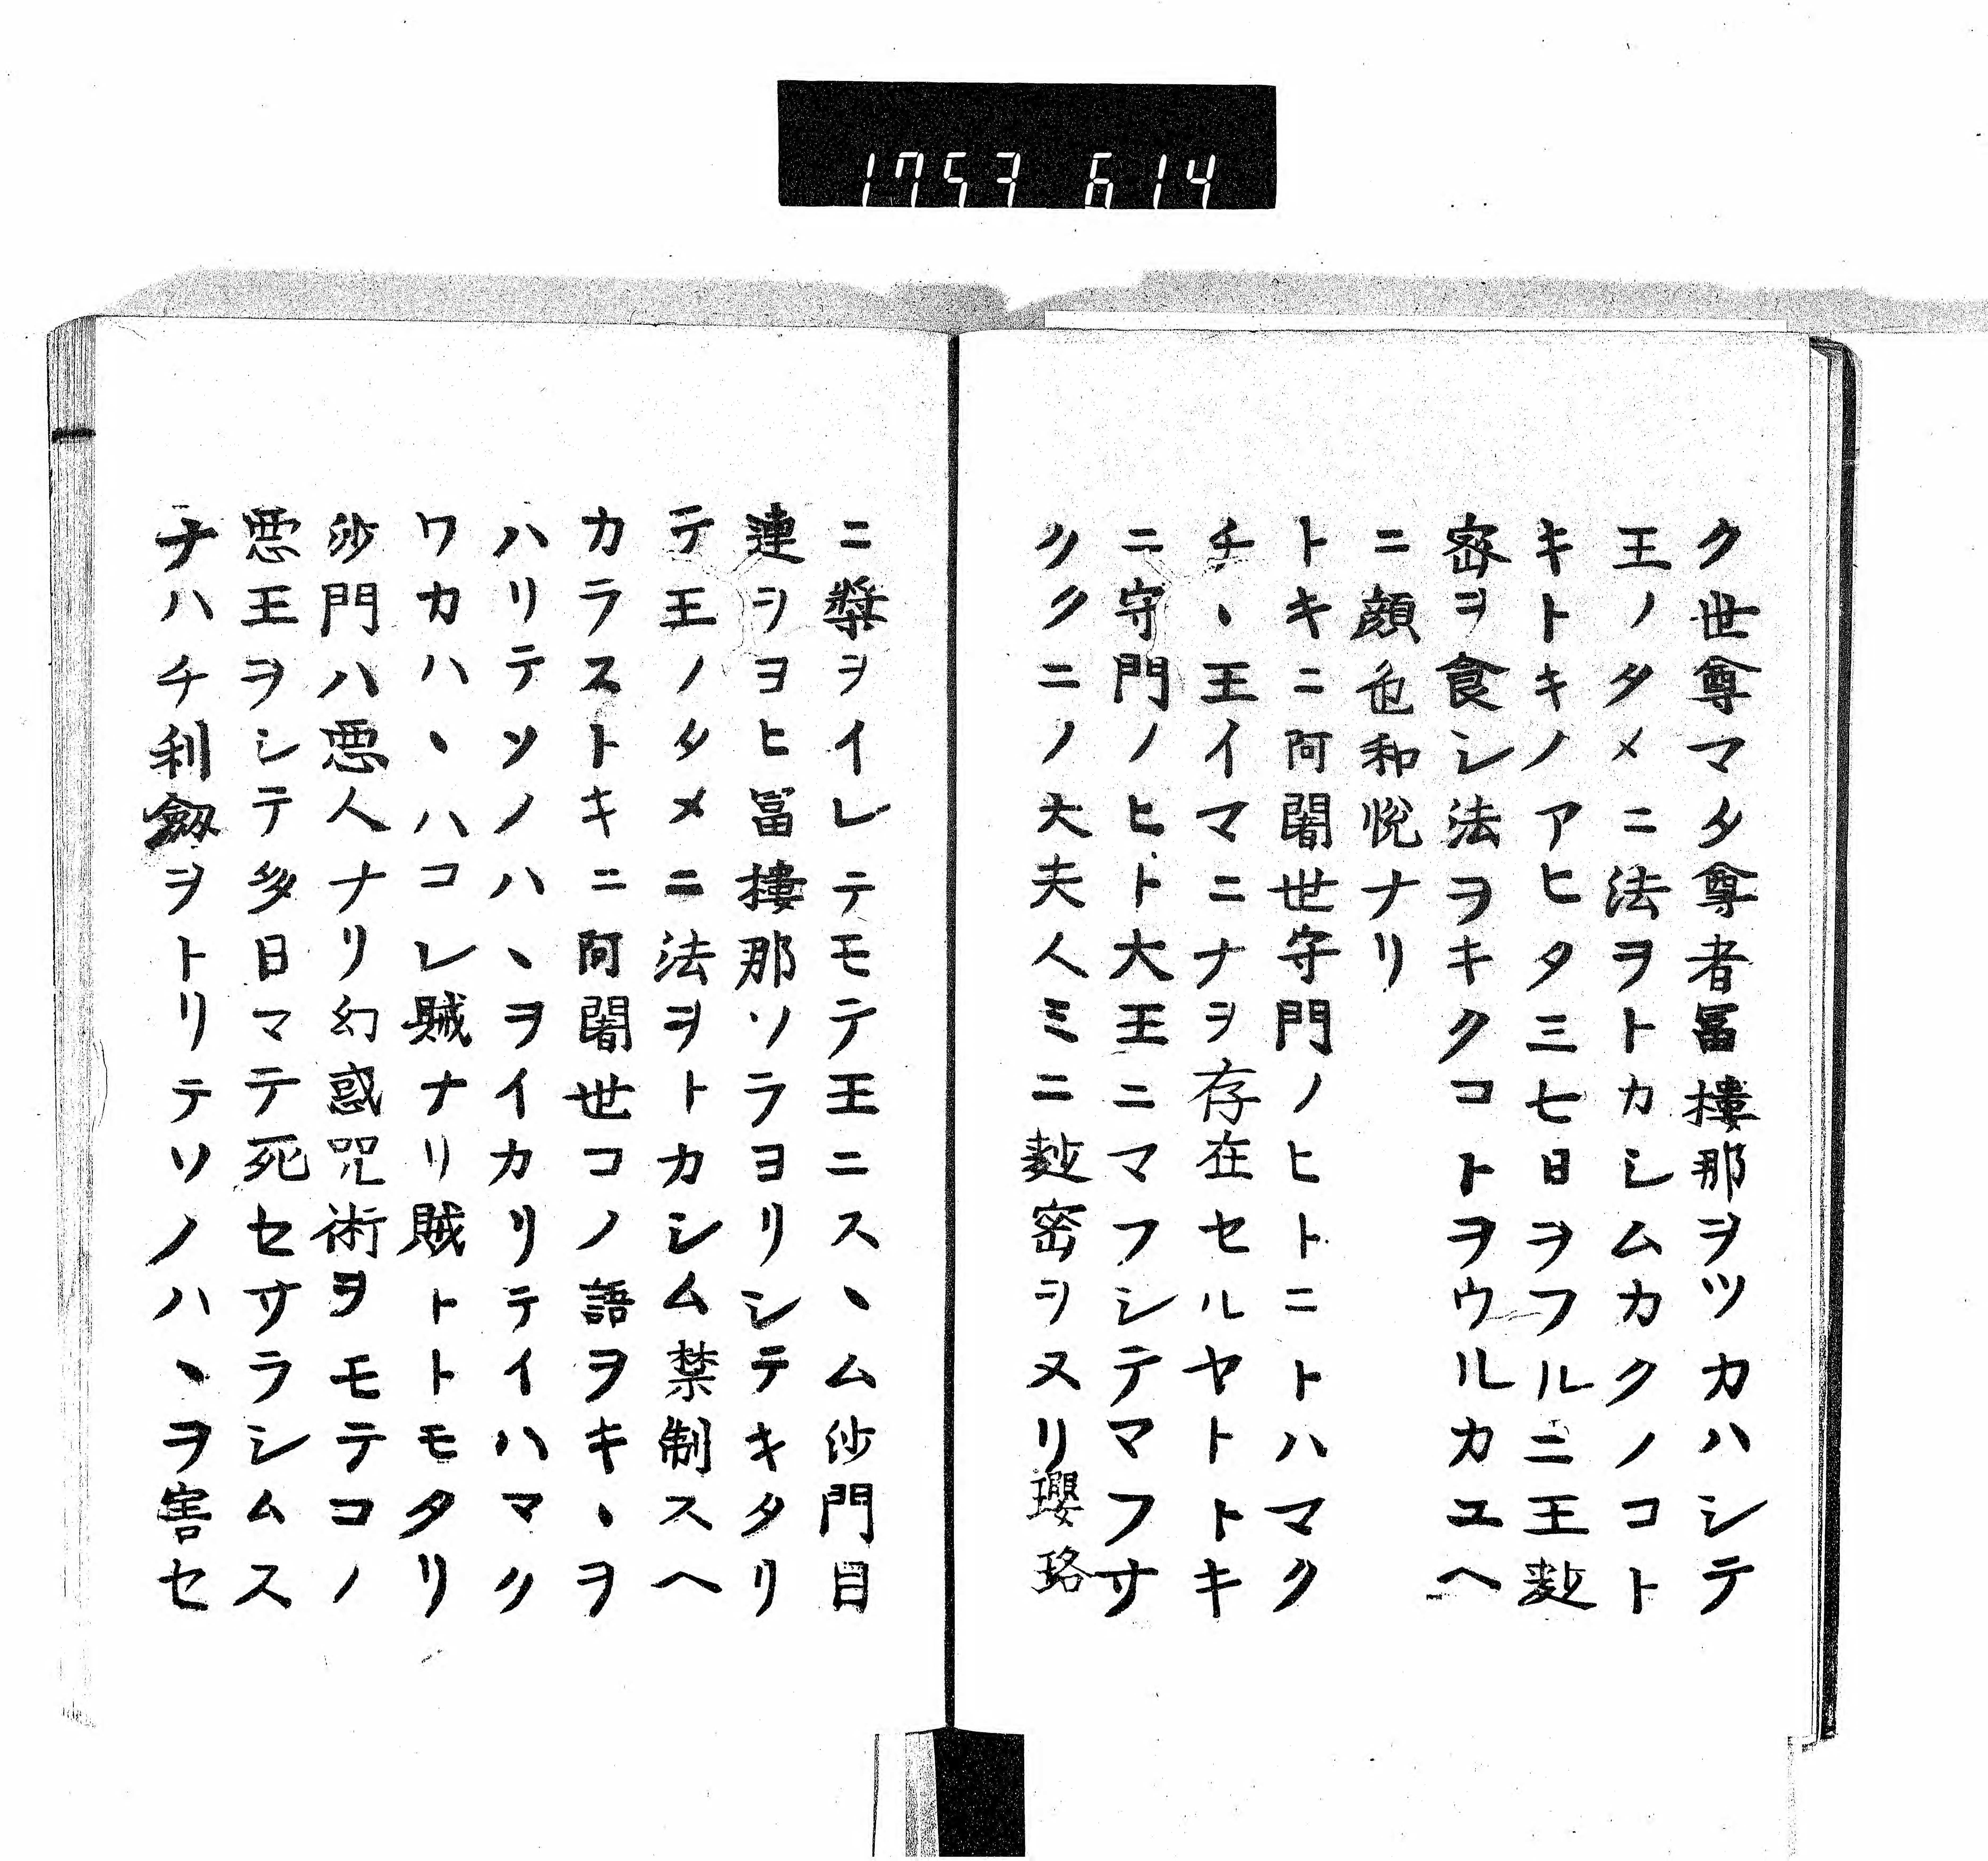 1753 614
ク世尊マタ尊者冨樓那ヲツカハシテ
王ノタメニ法ヲトカシムカクノコト
キトキノアヒタ三七日ヲフルニ王麨
宻ヲ食シ法ヲキクコトヲウルカユヘ
ニ顔色和悅ナリ
トキニ阿闍世守門ノヒトニトハマク
チヽ王イマニナヲ存在セルヤトトキ
ニ守門ノヒト大王ニマフシテマフサ
クククニノ大夫人ミニ麨宻ヲヌリ瓔珞
ニ漿ヲイレテモテ王ニスヽム沙門目
連ヲヨヒ冨樓那ソラヨリシテキタリ
テ王ノタメニ法ヲトカシム禁制スヘ
カラストキニ阿闍世コノ語ヲキヽヲ
ハリテソノハヽヲイカリテイハマク
ワカハヽハコレ賊ナリ賊トトモタリ
沙門ハ惡人ナリ幻惑咒術ヲモテコノ
惡王ヲシテ多日マテ死セサラシムス
ナハチ利劔ヲトリテソノハヽヲ害セ